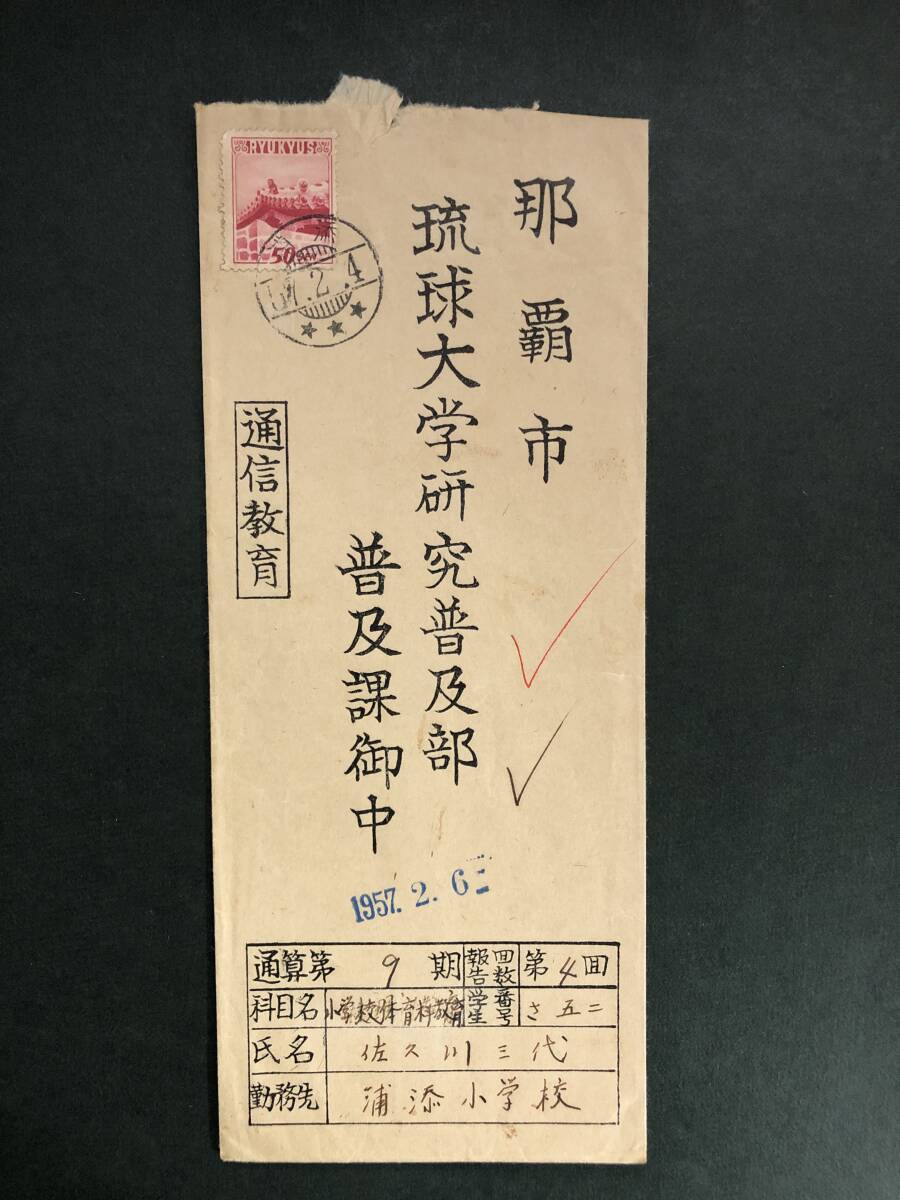 RYUKYUS
50
57.2.4
那覇市
琉球大学研究普及部
普及課御中
通信教育
1957.2.6
通算第 9 期 報告回数 第 4 回
科目名 小学校体育科教育 学生番号 さ五二
氏名 佐久川三代
勤務先 浦添小学校